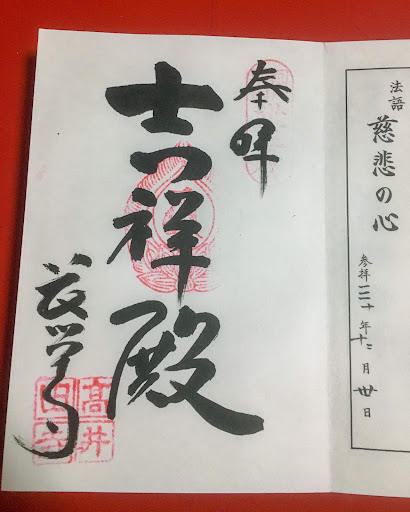 法語
慈悲の心
参拝三十年十二月廿日
奉拝
吉祥殿
長栄寺
髙井